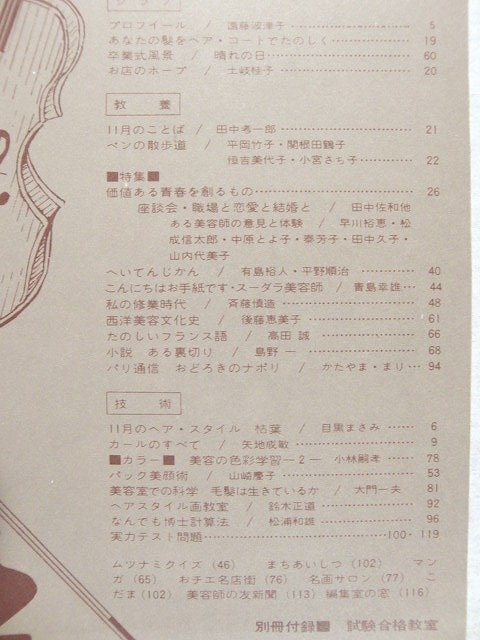 グラフ
プロフィール / 遠藤波津子 5
あなたの髪をヘア・コートでたのしく 19
卒業式風景 / 晴れの日 60
お店のホープ / 土岐桂子 20
教養
11月のことば / 田中考一郎 21
ペンの散歩道 / 平岡竹子・関根田鶴子
恒吉美代子・小宮さち子 22
■特集■
価値ある青春を創るもの 26
座談会・職場と恋愛と結婚と / 田中佐和他
ある美容師の意見と体験 / 早川裕恵・松
成信太郎・中原とよ子・秦芳子・田中久子・
山内代美子
へいてんじかん / 有島裕人・平野順治 40
こんにちはお手紙です・スーダラ美容師 / 青島幸雄 44
私の修業時代 / 斉藤慎造 48
西洋美容文化史 / 後藤恵美子 61
たのしいフランス語 / 高田 誠 66
小説 ある裏切り / 島野 一 68
パリ通信 おどろきのナポリ / かたやま・まり 94
技術
11月のヘア・スタイル 枯葉 / 目黒まさみ 6
カールのすべて / 矢地成敏 9
■カラー■ 美容の色彩学習—2— 小林嗣孝 78
パック美顔術 / 山崎慶子 53
美容室での科学 毛髪は生きているか / 大門一夫 81
ヘアスタイル画教室 / 鈴木正道 92
なんでも博士計算法 / 松浦和雄 96
実力テスト問題 100・119
ムツナミクイズ (46) まちあいしつ (102) マン
ガ (65) おチエ名店街 (76) 名画サロン (77) こ
だま (102) 美容師の友新聞 (113) 編集室の窓 (116)
別冊付録■ 試験合格教室